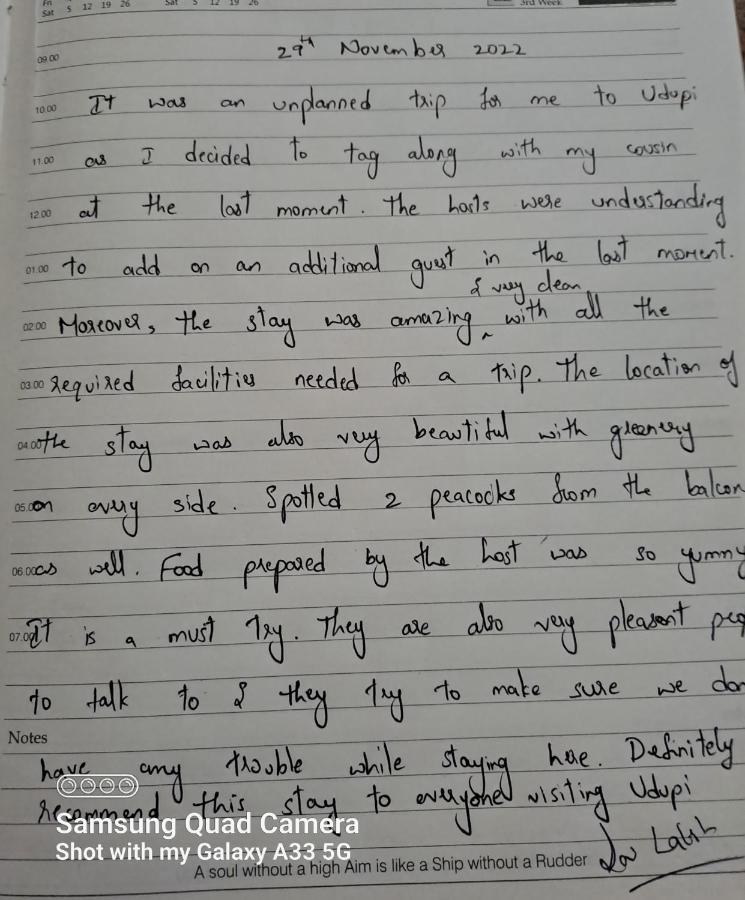 Fri
Sat 5 12 19 26 Sat 5 12 19 26 3rd Week
29th November 2022
09.00
10.00 It was an unplanned trip for me to Udupi
11.00 as I decided to tag along with my cousin
12.00 at the last moment. The hosts were understanding
01.00 to add on an additional guest in the last moment.
& very clean
02.00 Moreover, the stay was amazing ^ with all the
03.00 required facilities needed for a trip. The location of
04.00 the stay was also very beautiful with greenery
05.00 on every side. Spotted 2 peacocks from the balcon
06.00 as well. Food prepared by the host was so yummy
07.00 It is a must try. They are also very pleasant peo
to talk to & they try to make sure we don
Notes
have any trouble while staying here. Definitely
recommend this stay to everyone visiting Udupi
Samsung Quad Camera
Shot with my Galaxy A33 5G
A soul without a high Aim is like a Ship without a Rudder